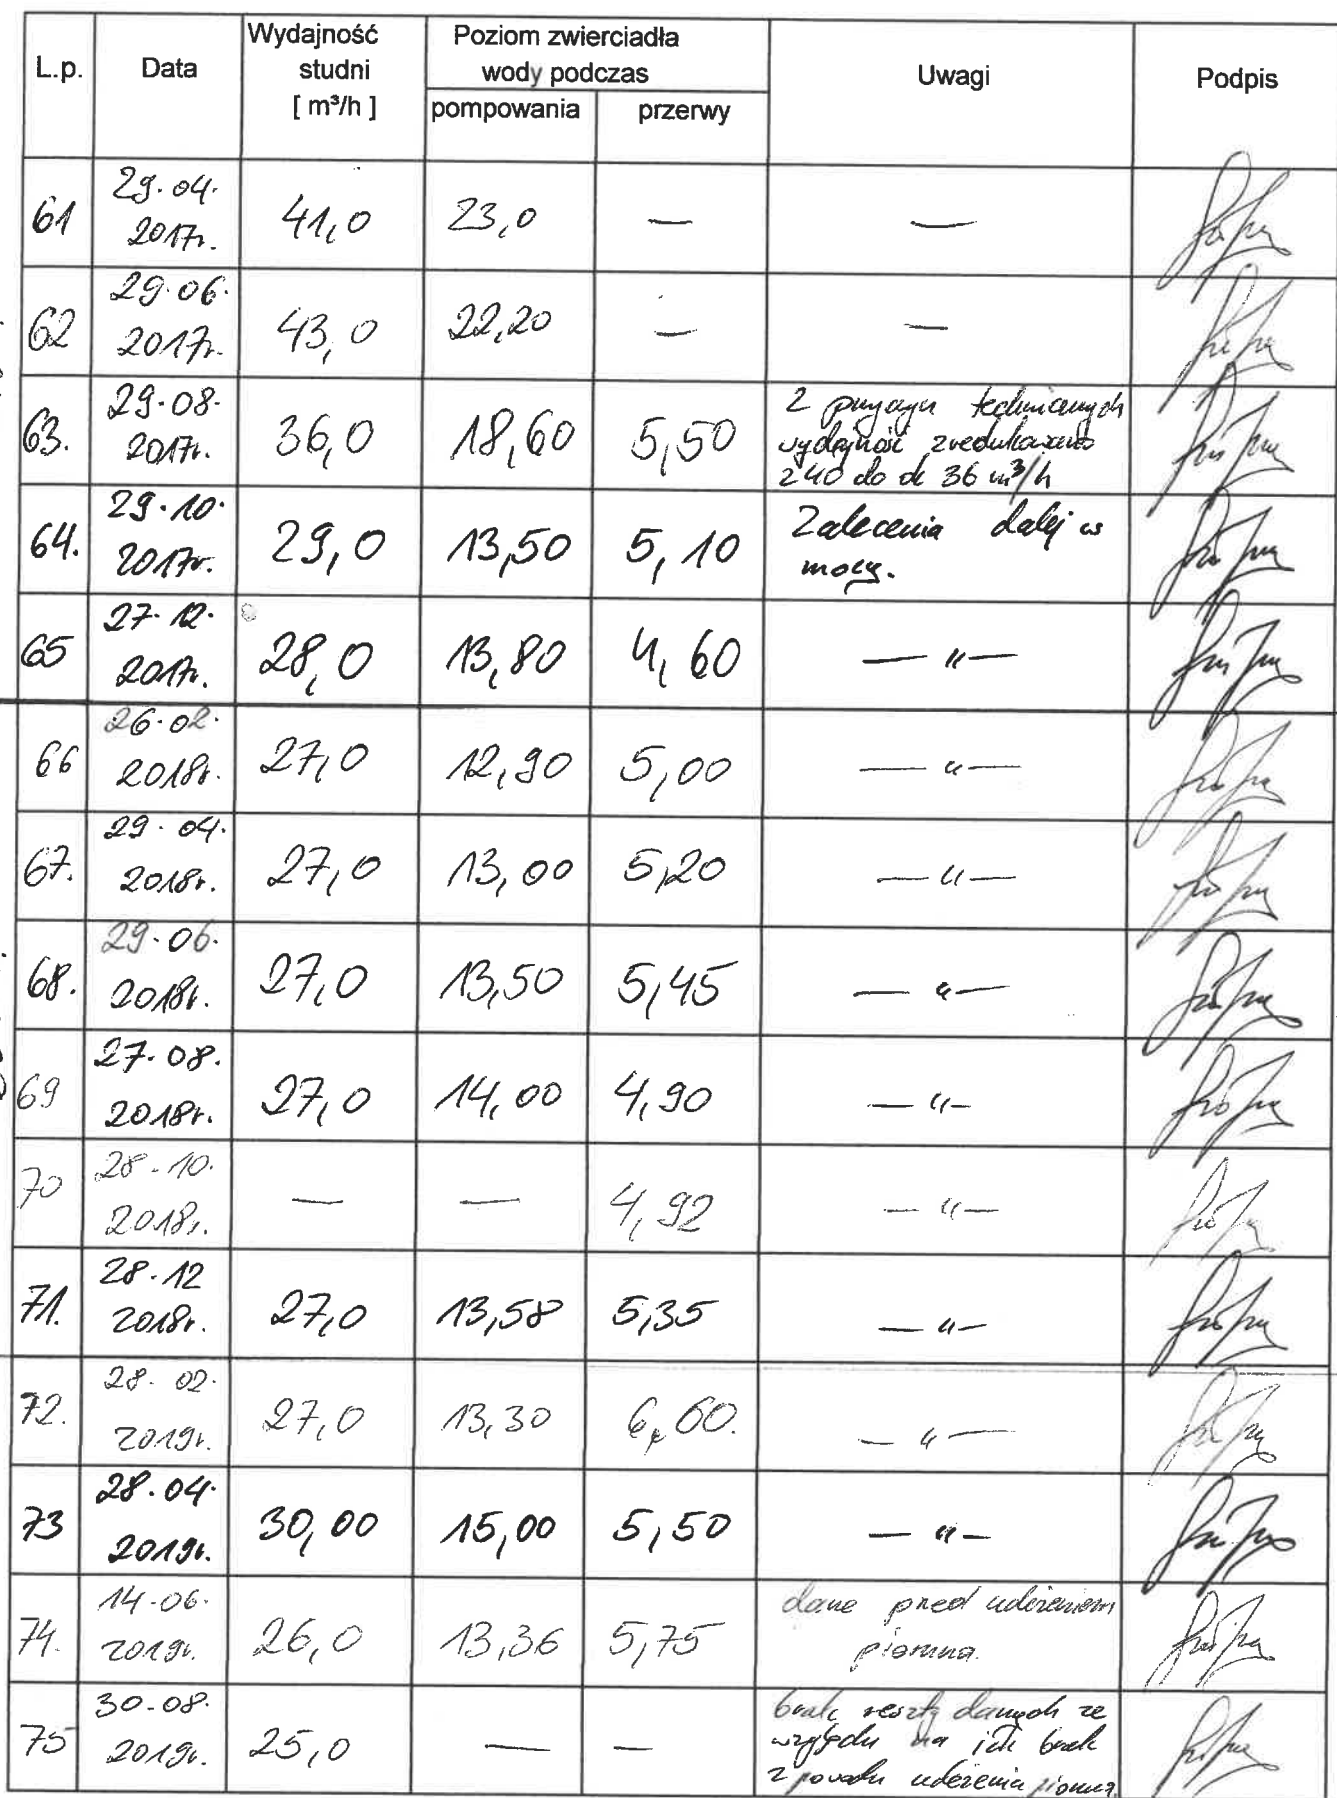 L.p. Data Wydajność studni [ m³/h ] Poziom zwierciadła wody podczas Uwagi Podpis
pompowania przerwy
61 29.04. 2017r. 41,0 23,0 — —
62 29.06. 2017r. 43,0 22,20 — —
63. 29.08. 2017r. 36,0 18,60 5,50 z przyczyn technicznych
wydajność zredukowano
z 40 do ok 36 m³/h
64. 29.10. 2017r. 29,0 13,50 5,10 Zalecenia dalej w
mocy.
65 27.12. 2017r. 28,0 13,80 4,60 — 〃 —
66 26.02. 2018r. 27,0 12,90 5,00 — 〃 —
67. 29.04. 2018r. 27,0 13,00 5,20 — 〃 —
68. 29.06. 2018r. 27,0 13,50 5,45 — 〃 —
69 27.08. 2018r. 27,0 14,00 4,90 — 〃 —
70 28.10. 2018r. — — 4,92 — 〃 —
71. 28.12 2018r. 27,0 13,58 5,35 — 〃 —
72. 28.02. 2019r. 27,0 13,30 6,60. — 〃 —
73 28.04. 2019r. 30,00 15,00 5,50 — 〃 —
74. 14.06. 2019r. 26,0 13,36 5,75 dane przed uderzeniem
pioruna.
75 30.08. 2019r. 25,0 — — brak reszty danych ze
względu na ich brak
z powodu uderzenia pioruna